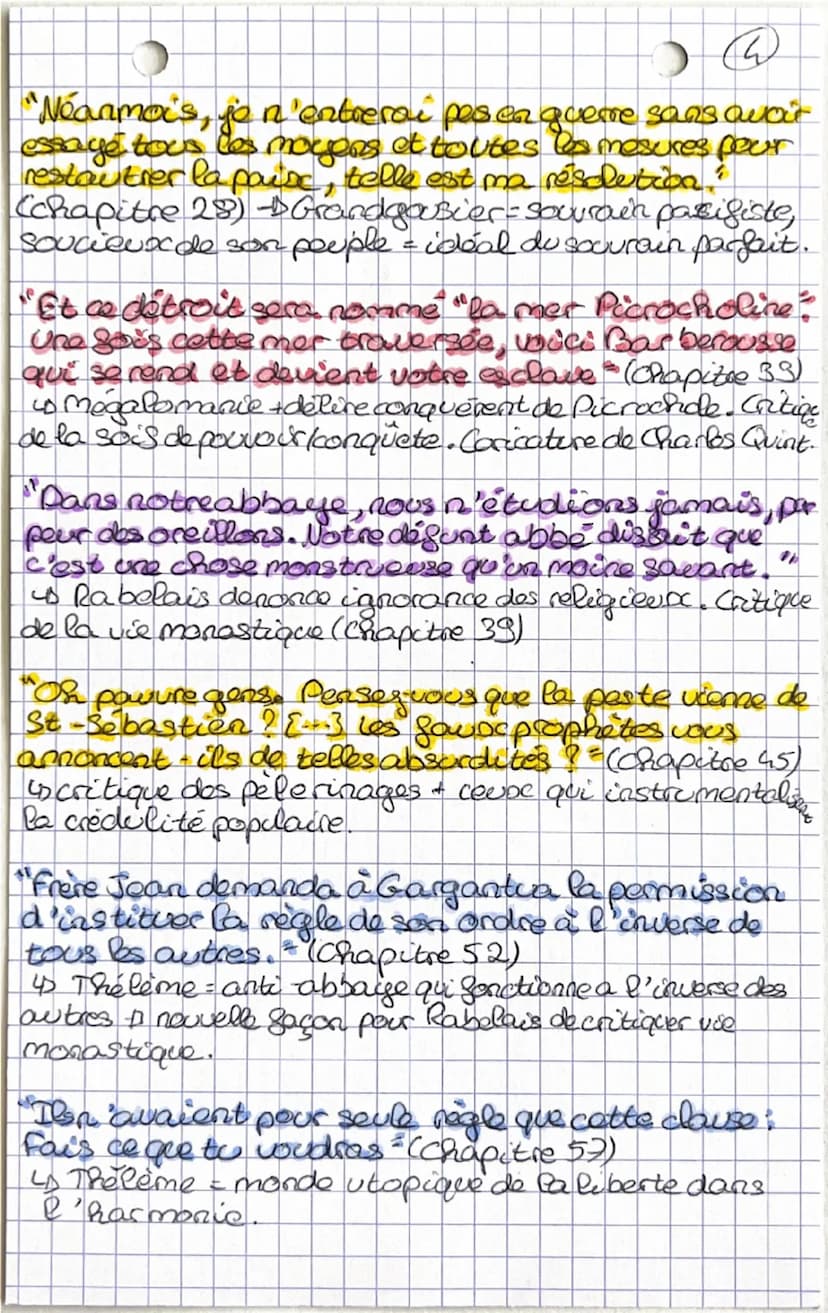 4
"Néanmois, je n'entrerai pas en guerre sans avoir
essayé tous les moyens et toutes les mesures pour
restautrer la paix, telle est ma résolution."
(Chapitre 28) → Grandgousier = souverain pacifiste,
soucieux de son peuple = idéal du souverain parfait.
"Et ce détroit sera nommé "la mer Picrocholine".
Une fois cette mer traversée, voici Barberousse
qui se rend et devient votre esclave" (Chapitre 33)
↳ Mégalomanie + délire conquérent de Picrochole. Critique
de la soif de pouvoir/conquête. Caricature de Charles Quint.
"Dans notre abbaye, nous n'étudions jamais, par
peur des oreillons. Notre défunt abbé disait que
c'est une chose monstrueuse qu'un moine savant."
↳ Rabelais dénonce ignorance des religieux. Critique
de la vie monastique (Chapitre 39)
"Oh pauvre gens. Pensez-vous que la peste vienne de
St-Sébastien ? [...] les faux prophètes vous
annoncent-ils de telles absurdités ?" (Chapitre 45)
↳ critique des pèlerinages + ceux qui instrumentalisent
la crédulité populaire.
"Frère Jean demanda à Gargantua la permission
d'instituer la règle de son ordre à l'inverse de
tous les autres." (Chapitre 52)
↳ Thélème = anti-abbaye qui fonctionne a l'inverse des
autres → nouvelle façon pour Rabelais de critiquer vie
monastique.
"Ils n'avaient pour seule règle que cette clause :
Fais ce que tu voudras" (Chapitre 57)
↳ Thélème = monde utopique de la liberte dans
l'harmonie.